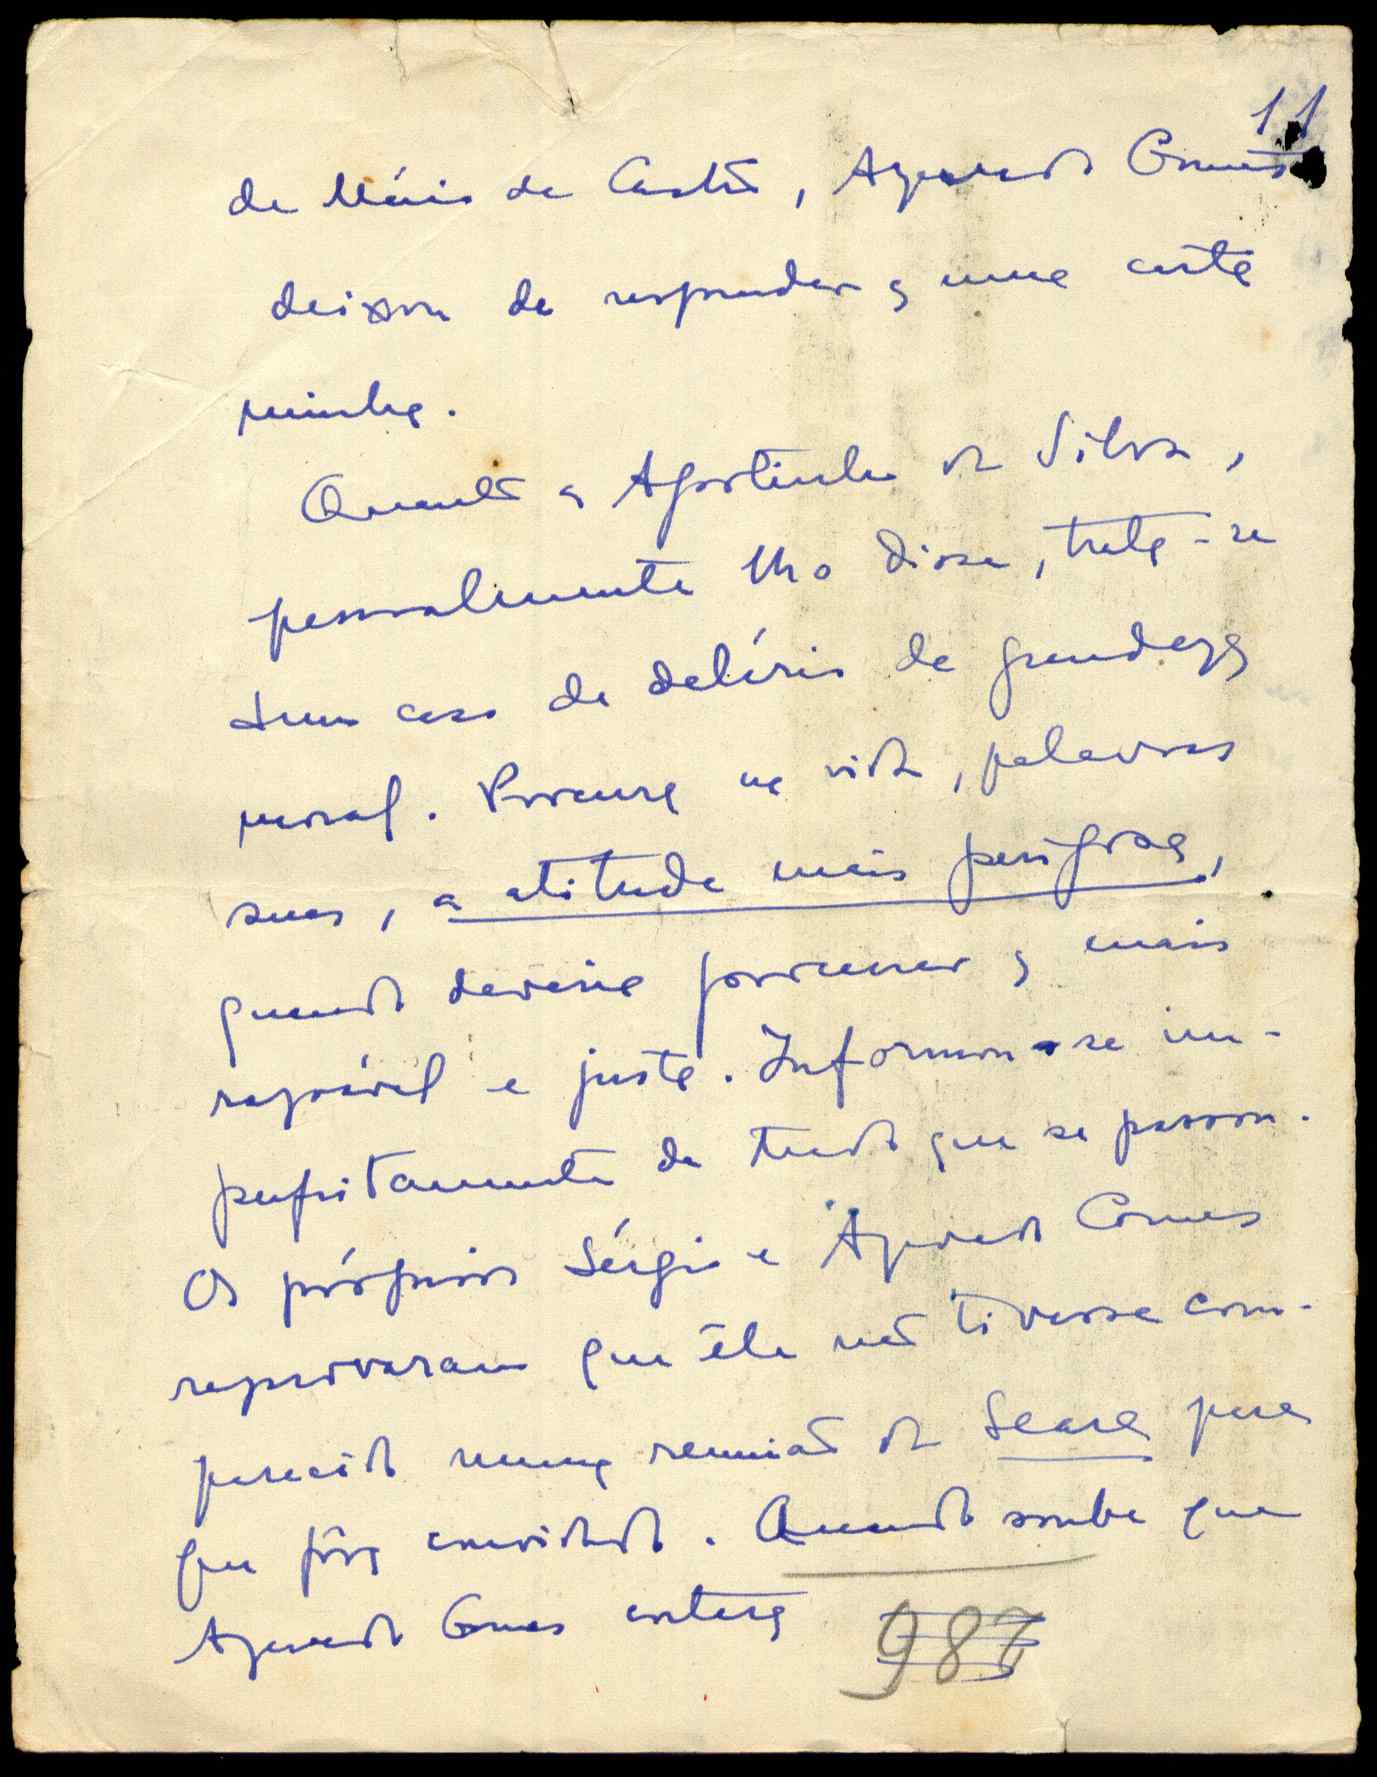 11
de Mário de Castro, Azevedo Gomes
deixou de responder a uma carta
minha.
Quanto a Agostinho da Silva,
pessoalmente lho disse, trata-se
dum caso de delírio de grandeza
moral. Procura na vida, palavras
suas, a atitude mais perigosa,
quando deveria procurar a mais
razoável e justa. Informou-se im-
perfeitamente de tudo que se passou.
Os próprios Sérgio e Azevedo Gomes
reprovaram que êle não tivesse com-
parecido numa reunião da Seara para
que fôra convidado. Quando soube que
Azevedo Gomes
987